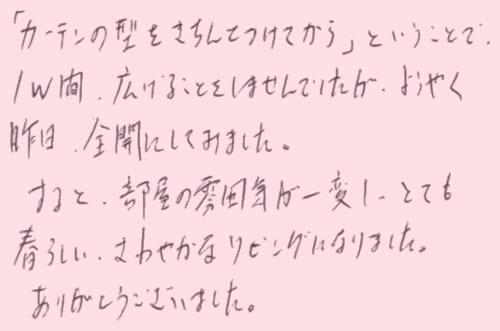 「カーテンの型をきちんとつけてから」ということで、
1W間、広げることをしませんでしたが、ようやく
昨日、全開にしてみました。
すると、部屋の雰囲気が一変し、とても
春らしい、さわやかなリビングになりました。
ありがとうございました。